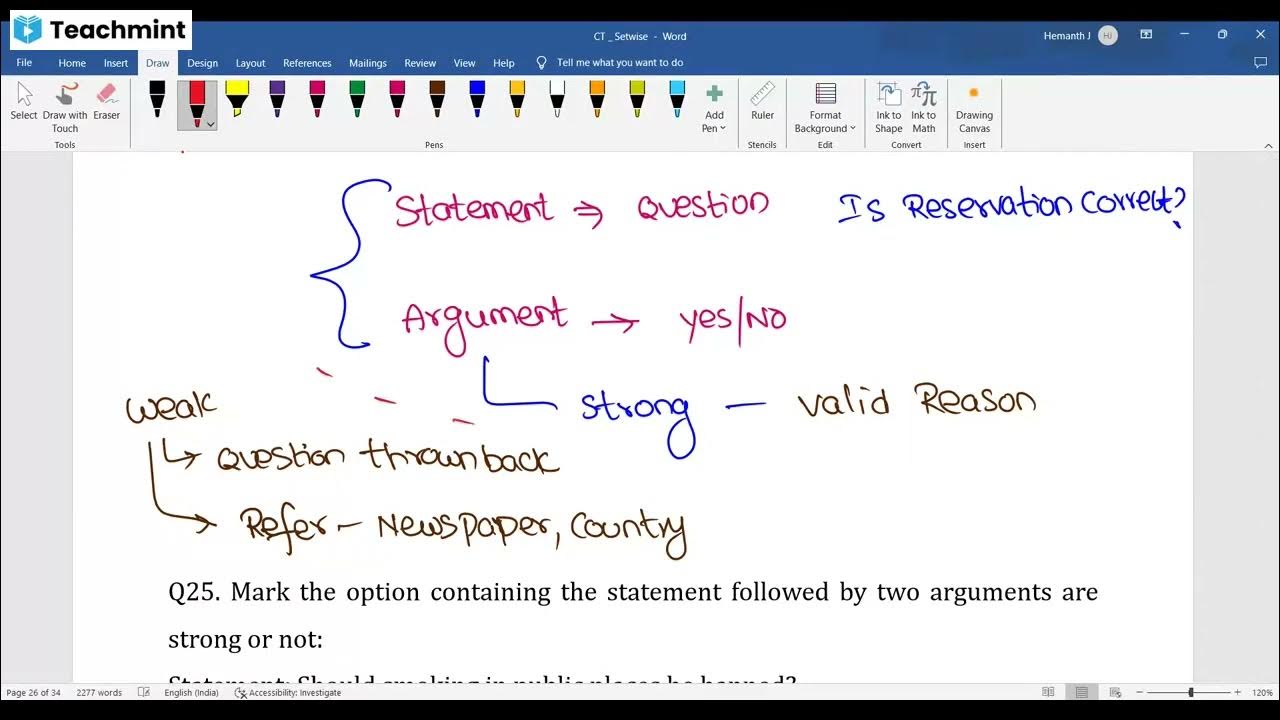 Teachmint
CT _ Setwise - Word
Hemanth J
HJ
File Home Insert Draw Design Layout References Mailings Review View Help Tell me what you want to do
Select Draw with Touch Eraser
Add Pen
Ruler
Format Background
Ink to Shape
Ink to Math
Drawing Canvas
Tools Pens Stencils Edit Convert Insert
Statement ⇒ Question Is Reservation Correct?
Argument → Yes/No
weak strong - valid Reason
↳ Question thrown back
→ Refer - Newspaper, Country
Q25. Mark the option containing the statement followed by two arguments are
strong or not:
Statement: Should smoking in public places be banned?
Page 26 of 34 2277 words English (India) Accessibility: Investigate 120%